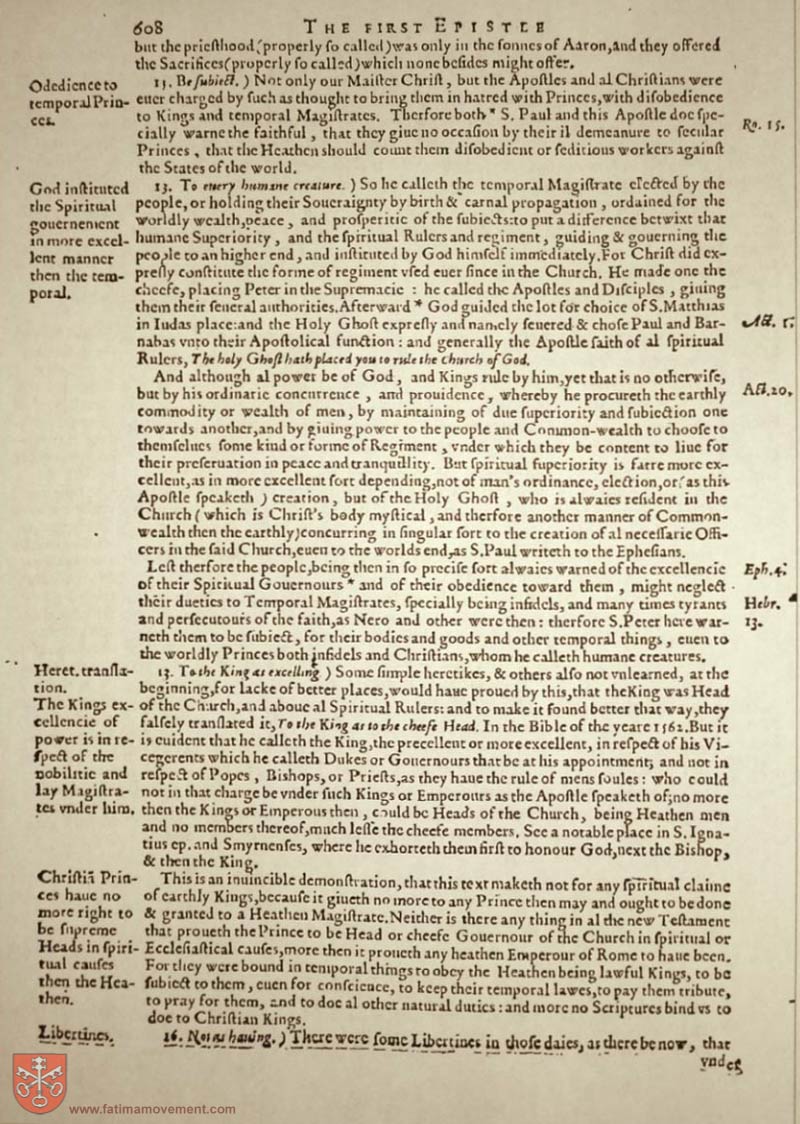 608 THE FIRST EPISTLE
but the priesthood (properly so called) was only in the sonnes of Aaron, and they offered
the Sacrifices (properly so called) which none besides might offer.
Odedience to
temporal Prin-
ces.
13. Be subiect.) Not only our Maister Christ, but the Apostles and al Christians were
euer charged by such as thought to bring them in hatred with Princes, with disobedience
to Kings and temporal Magistrates. Therfore both * S. Paul and this Apostle doe spe-
cially warne the faithful, that they giue no occasion by their il demeanure to secular
Princes, that the Heathen should count them disobedient or seditious workers against
the States of the world.
Ro. 15.
God instituted
the Spiritual
gouernement
in more excel-
lent manner
then the tem-
poral.
13. To euery humane creature.) So he calleth the temporal Magistrate elected by the
people, or holding their Soueraignty by birth & carnal propagation, ordained for the
worldly wealth, peace, and prosperitie of the subiects: to put a difference betwixt that
humane Superiority, and the spiritual Rulers and regiment, guiding & gouerning the
people to an higher end, and instituted by God himself immediately. For Christ did ex-
presly constitute the forme of regiment vsed euer since in the Church. He made one the
cheefe, placing Peter in the Supremacie: he called the Apostles and Disciples, giuing
them their seueral authorities. Afterward * God guided the lot for choice of S. Matthias
in Iudas place: and the Holy Ghost expresly and namely seuered & chose Paul and Bar-
nabas vnto their Apostolical function: and generally the Apostle saith of al spiritual
Rulers, The holy Ghost hath placed you to rule the church of God.
Act. 1.
And although al power be of God, and Kings rule by him, yet that is no otherwise,
but by his ordinarie concurrence, and prouidence, whereby he procureth the earthly
commodity or wealth of men, by maintaining of due superiority and subiection one
towards another, and by giuing power to the people and Common-wealth to choose to
themselues some kind or forme of Regiment, vnder which they be content to liue for
their preseruation in peace and tranquillity. But spiritual superiority is farre more ex-
cellent, as in more excellent sort depending, not of man's ordinance, election, or (as this
Apostle speaketh) creation, but of the Holy Ghost, who is alwaies resident in the
Church (which is Christ's body mystical, and therfore another manner of Common-
wealth then the earthly) concurring in singular sort to the creation of al necessarie Offi-
cers in the said Church, euen to the worlds end, as S. Paul writeth to the Ephesians.
Act. 20.
Lest therfore the people, being then in so precise sort alwaies warned of the excellencie
of their Spiritual Gouernours * and of their obedience toward them, might neglect
their dueties to Temporal Magistrates, specially being infidels, and many times tyrants
and persecutours of the faith, as Nero and other were then: therfore S. Peter here war-
neth them to be subiect, for their bodies and goods and other temporal things, euen to
the worldly Princes both infidels and Christians, whom he calleth humane creatures.
Eph. 4.
Hebr.
13.
Heret. transla-
tion.
The Kings ex-
cellencie of
power is in re-
spect of the
nobilitie and
lay Magistra-
tes vnder him.
13. To the King as excelling) Some simple heretikes, & others also not vnlearned, at the
beginning, for lacke of better places, would haue proued by this, that the King was Head
of the Church, and aboue al Spiritual Rulers: and to make it found better that way, they
falsely translated it, To the King as to the cheefe Head. In the Bible of the yeare 1562. But it
is euident that he calleth the King, the precellent or more excellent, in respect of his Vi-
cegerents which he calleth Dukes or Gouernours that be at his appointment; and not in
respect of Popes, Bishops, or Priests, as they haue the rule of mens soules: who could
not in that charge be vnder such Kings or Emperours as the Apostle speaketh of; no more
then the Kings or Emperous then, could be Heads of the Church, being Heathen men
and no members thereof, much lesse the cheefe members. See a notable place in S. Igna-
tius ep. and Smyrnenses, where he exhorteth them first to honour God, next the Bishop,
& then the King.
Christiā Prin-
ces haue no
more right to
be supreme
Heads in spiri-
tual causes
then the Hea-
then.
This is an inuincible demonstration, that this text maketh not for any spiritual claime
of earthly Kings, because it giueth no more to any Prince then may and ought to be done
& granted to a Heathen Magistrate. Neither is there any thing in al the new Testament
that proueth the Prince to be Head or cheefe Gouernour of the Church in spiritual or
Ecclesiastical causes, more then it proueth any heathen Emperour of Rome to haue been.
For they were bound in temporal things to obey the Heathen being lawful Kings, to be
subiect to them, euen for conscience, to keep their temporal lawes, to pay them tribute,
to pray for them, and to doe al other natural duties: and more no Scriptures bind vs to
doe to Christian Kings.
Libertines.
16. Not as hauing.) There were some Libertines in those daies, as there be now, that
vnder
www.fatimamovement.com